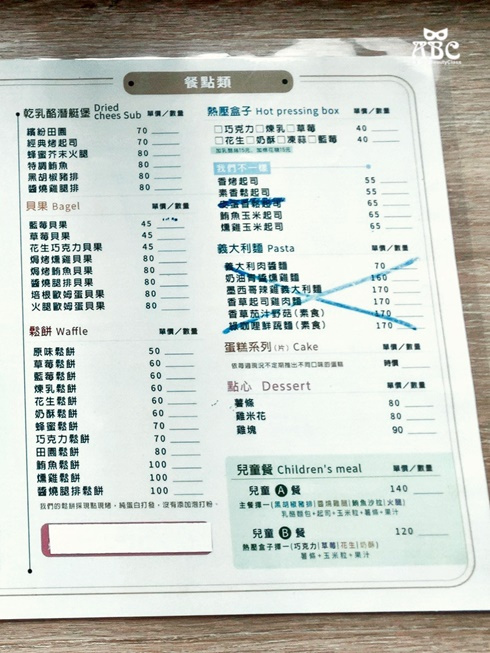 ABC
餐點類
乾乳酪潛艇堡 Dried chees Sub 單價／數量
繽紛田園 70
經典烤起司 70
蜂蜜芥末火腿 80
特調鮪魚 80
黑胡椒豬排 80
醬燒雞腿排 80
貝果 Bagel 單價／數量
藍莓貝果 45
草莓貝果 45
花生巧克力貝果 45
焗烤燻雞貝果 80
焗烤鮪魚貝果 80
醬燒腿排貝果 80
培根歐姆蛋貝果 80
火腿歐姆蛋貝果 80
鬆餅 Waffle 單價／數量
原味鬆餅 50
草莓鬆餅 60
藍莓鬆餅 60
煉乳鬆餅 60
花生鬆餅 60
奶酥鬆餅 60
蜂蜜鬆餅 70
巧克力鬆餅 70
田園鬆餅 80
鮪魚鬆餅 100
燻雞鬆餅 100
醬燒腿排鬆餅 100
我們的鬆餅採現點現烤，純蛋白打發，沒有添加泡打粉。
熱壓盒子 Hot pressing box 單價／數量
□巧克力□煉乳□草莓 40
□花生□奶酥□凍蒜□藍莓 40
我們不一樣
香烤起司 55
素香鬆起司 55
皮蛋香鬆起司 65
鮪魚玉米起司 65
燻雞玉米起司 65
義大利麵 Pasta 單價／數量
義大利肉醬麵 70
奶油青醬燻雞麵 160
墨西哥辣雞義大利麵 170
香草起司雞肉麵 170
香草茄汁野菇(素食) 170
綠咖哩鮮蔬麵(素食) 170
蛋糕系列(片) Cake 單價／數量
依每週商況不定期推出不同口味的蛋糕 時價
點心 Dessert 單價／數量
薯條 80
雞米花 80
雞塊 90
兒童餐 Children's meal 單價／數量
兒童 A 餐 140
主餐擇一(黑胡椒豬排|醬燒雞腿|鮪魚沙拉|火腿)
乳酪麵包+起司+玉米粒+薯條+果汁
兒童 B 餐 120
熱壓盒子擇一(巧克力|草莓|花生|奶酥)
薯條+玉米粒+果汁